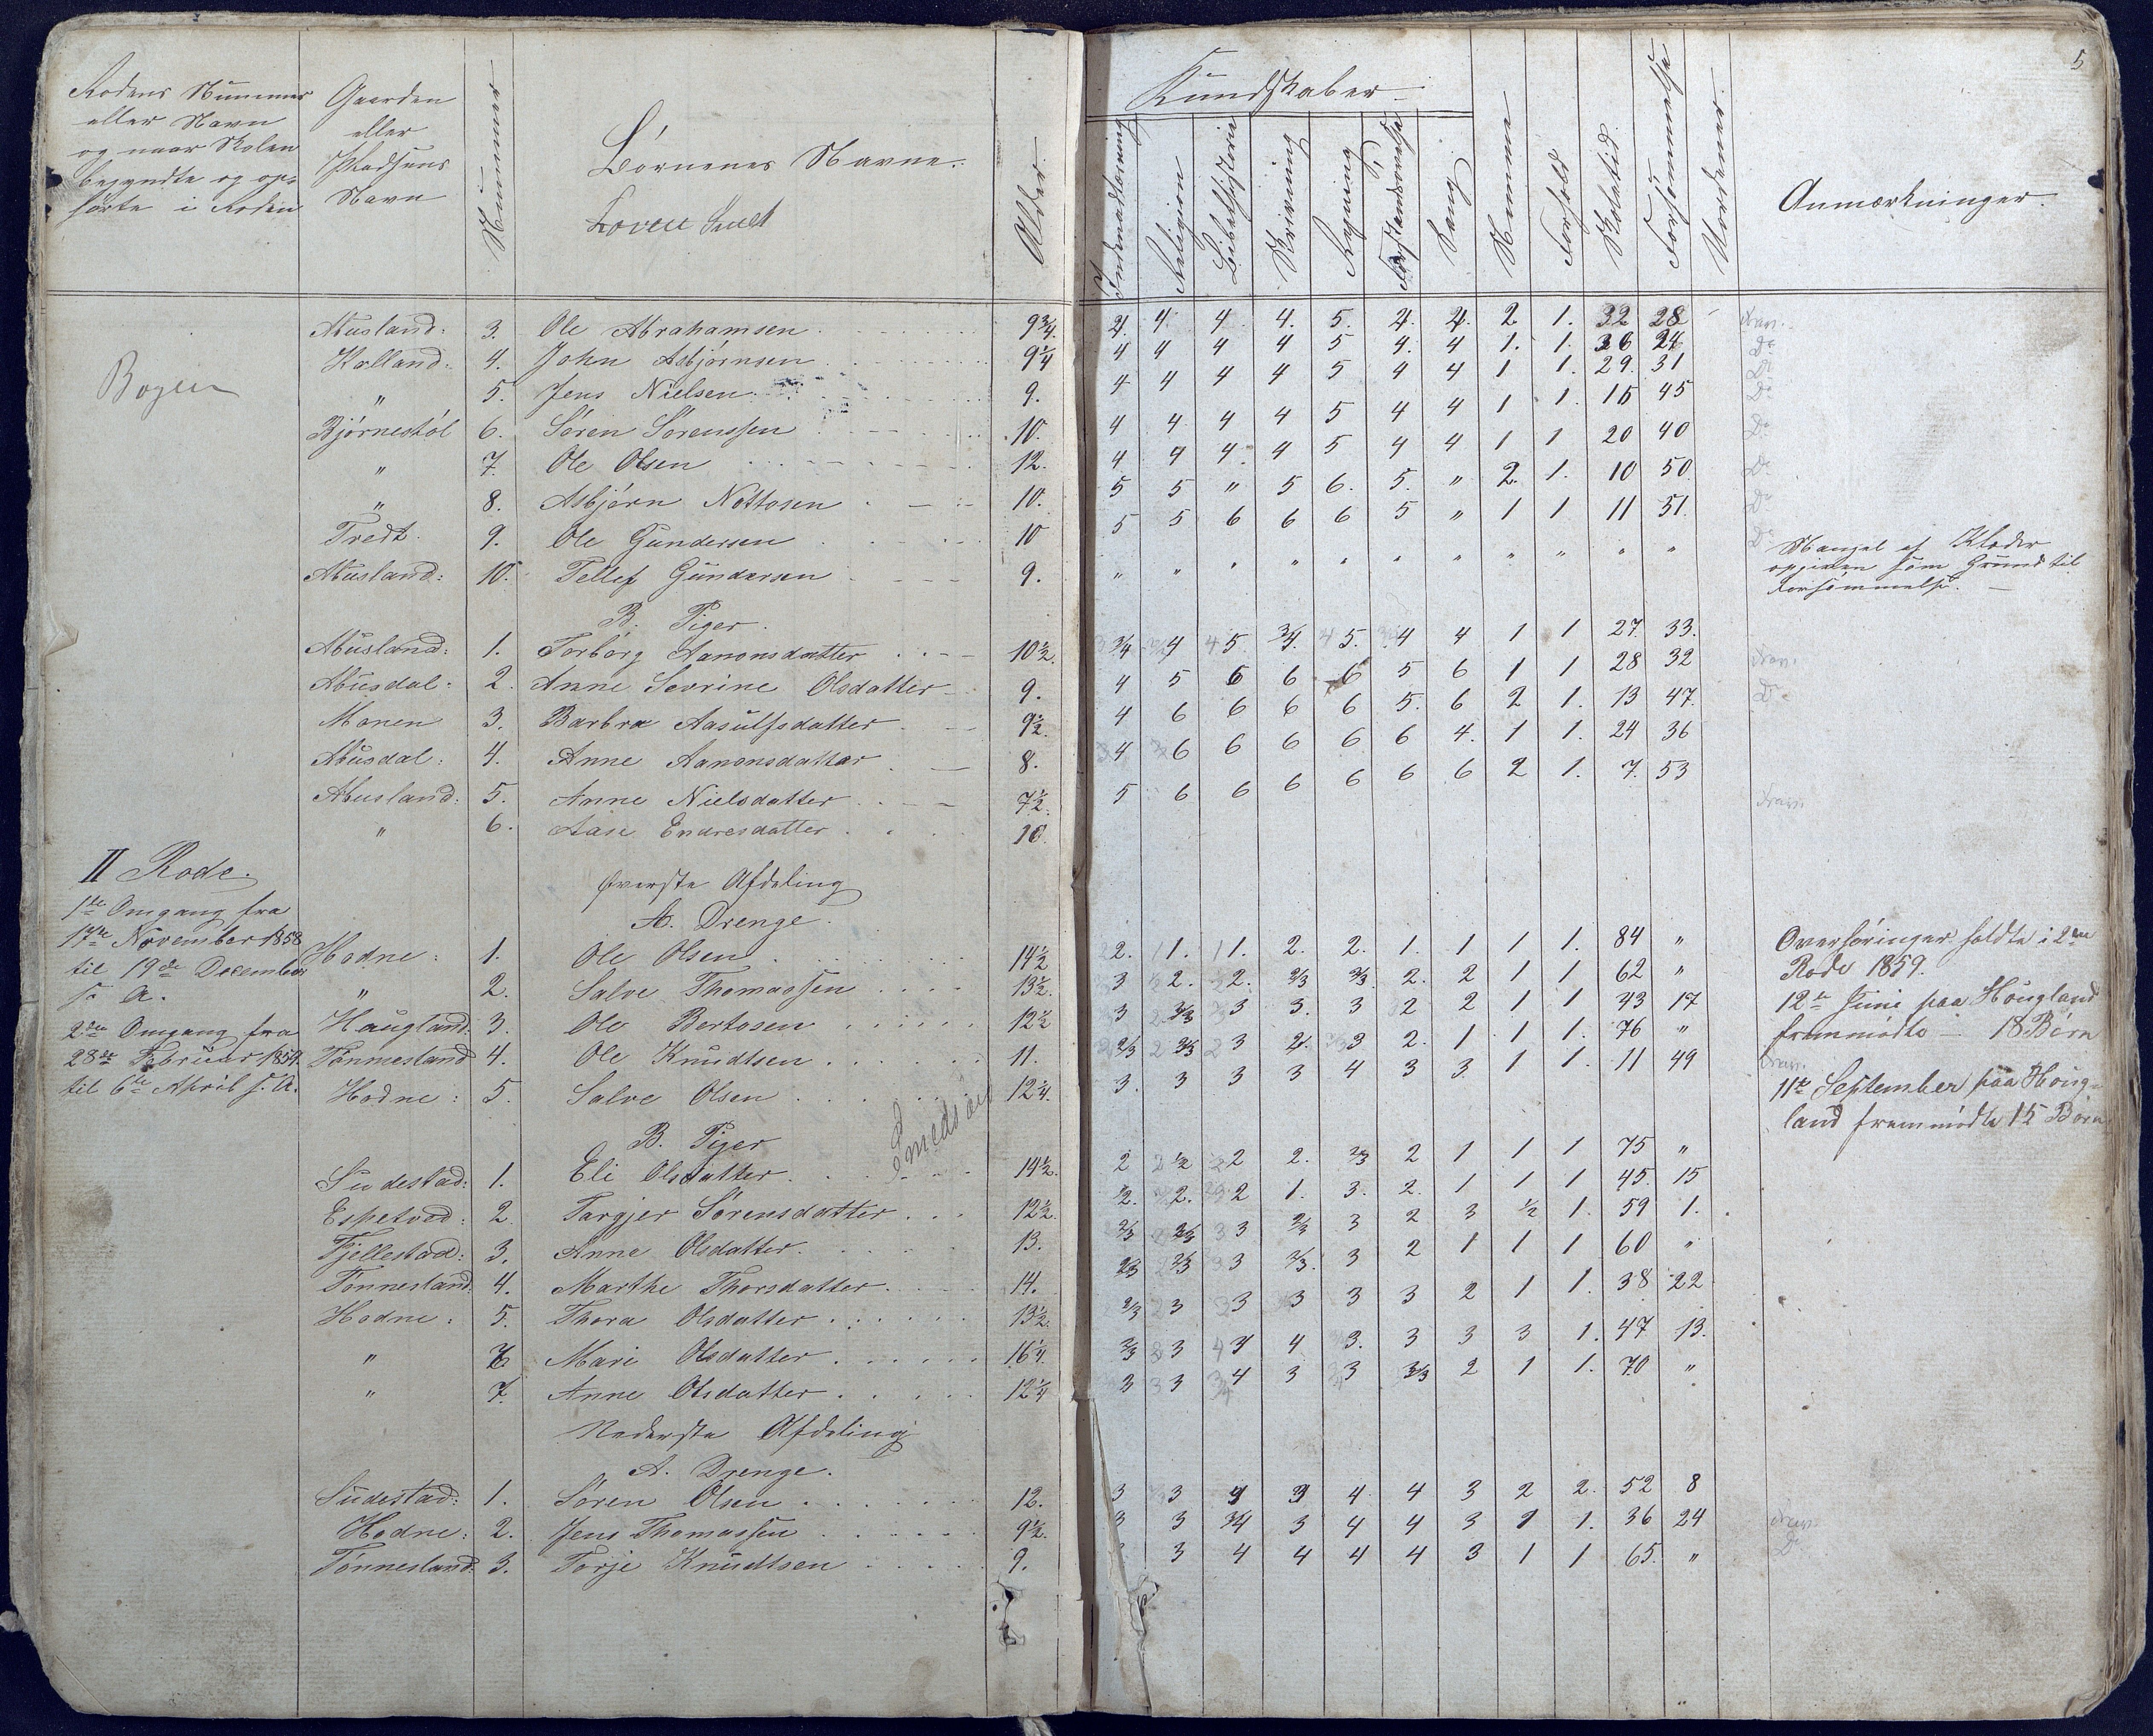 5
Rodens Nummer
eller Navn
og naar Skolen
begyndte og op-
hørte i Roden
Gaarden
eller
Pladsens
Navn
Nummer
Børnenes Navne.
Alder.
Kundskaber.
Indenadlæsning
Religion
Bibelhistorie
Skrivning
Regning
Forstandsøvelse
Sang
Nemme
Forhold
Skoletid.
Forsømmelse
Anmærkninger.
Bogen
Abusland: 3. Ole Abrahamsen 9 3/4. 4. 4. 4. 4. 5. 4. 4. 2. 1. 32 28
Kalland: 4. John Asbjørnsen 9 1/4 4 4 4 4 5 4. 4 1. 1. 36 24 Do
" 5. Jens Nielsen 9. 4 4 4 4 5 4 4 1 1. 29. 31 Do
Bjørnestøl 6. Søren Sørenssen 10. 4 4 4 4 5 4 4 1 1. 15 45 Do
" 7. Ole Olsen 12. 4 4 4. 4 5 4 4 1 1 20 40 Do
" 8. Asbjørn Nottosen 10. 5 5 " 5 6. 5. " 2. 1. 10 50. Do
Tredt. 9. Ole Gundersen 10 5 5 6 6 6 5 " 1 1 11 51. Do
Abusland: 10. Tellef Gundersen 9. " " " " " " " " " " " Do
Mangel af Klæder
opgiven som Grund til
Forsømmelse.
B. Piger.
Abusland: 1. Torborg Aanonsdatter 10 1/2. 3/4 4 5. 3/4. 5. 4 4 1 1 27. 33.
Abusdal: 2. Anne Sevrine Olsdatter 9. 4 5 6 6 6 5 6 1 1 28 32
Monen 3. Barbra Aasulfsdatter 9 1/2. 4 6 6 6 6 5. 6 2 1. 13 47.
Abusdal: 4. Anne Aanonsdatter 8. 4 6 6 6 6 6 4. 1 1. 24 36
Abusland: 5. Anne Nielsdatter 7 1/2. 5 6 6 6 6 6 6 2 1. 7. 53
" 6. Aase Endresdatter 10.
II Rode.
1ste Omgang fra
17de November 1858
til 19de December
s. A.
2den Omgang fra
28de Februar 1859.
til 6te April s. A.
Øverste Afdeling
A. Drenge.
Hodne: 1. Ole Olsen 14 1/2 2. 1. 1. 2. 2. 1. 1 1 1. 84 "
" 2. Salve Thomassen 13 1/2. 3 2. 2. 2/3 2/3. 2. 2 1 1 62 "
Haugland: 3. Ole Bertosen 12 1/2 3 2/3 3 3. 3 2 2 1 1 43 17
Tønnesland 4. Ole Knudtsen 11. 2/3 2/3 3 2. 3 2. 1 1 1. 76 "
Hodne: 5. Salve Olsen 12 1/4. 3. 3 3 3 4 3 3 1 1. 11 49
Overhøringer holdte i 2den
Rode 1859.
12te Juni paa Hougland
fremmødte — 18 Børn
11te September paa Houg-
land fremmødte 15 Børn
B. Piger
Sudestad: 1. Eli Olsdatter 14 1/2. 2 1/2 2 2. 2/3 2 1 1 1 75 "
Espetved: 2. Targjer Sørensdatter 12 1/2. 1/2. 2. 2 1. 3. 2. 1 1 1 45. 15
Fjellestad: 3. Anne Olsdatter 13. 2/3 2/3 3 2/3 3 2 3 1/2 1. 59 1.
Tønnesland: 4. Marthe Thorsdatter 14. 2/3 2/3 3 2/3. 3 2 1 1 1 60 "
Hodne: 5. Thora Olsdatter 13 1/2. 2/3 3 3 3 3 3 2 1 1. 38 22
" 6 Mari Olsdatter 16 1/4. 2/3 3 4 4 3. 3 3 3 1. 47 13.
" 7. Anne Olsdatter 12 1/4 3 3 4 3 3 2/3 2 1 1. 70 "
Nederste Afdeling
A. Drenge.
Sudestad: 1. Søren Olsen 12. 3 3 4 3 4 4 3 2 2. 52 8
Hodne: 2. Jens Thomassen 9 1/2. 3 3 3/4 3 4 4 3 1 1. 36 24
Tønnesland: 3. Torje Knudtsen 9. 3 4 4 4 4 3 1 1 65. " Do